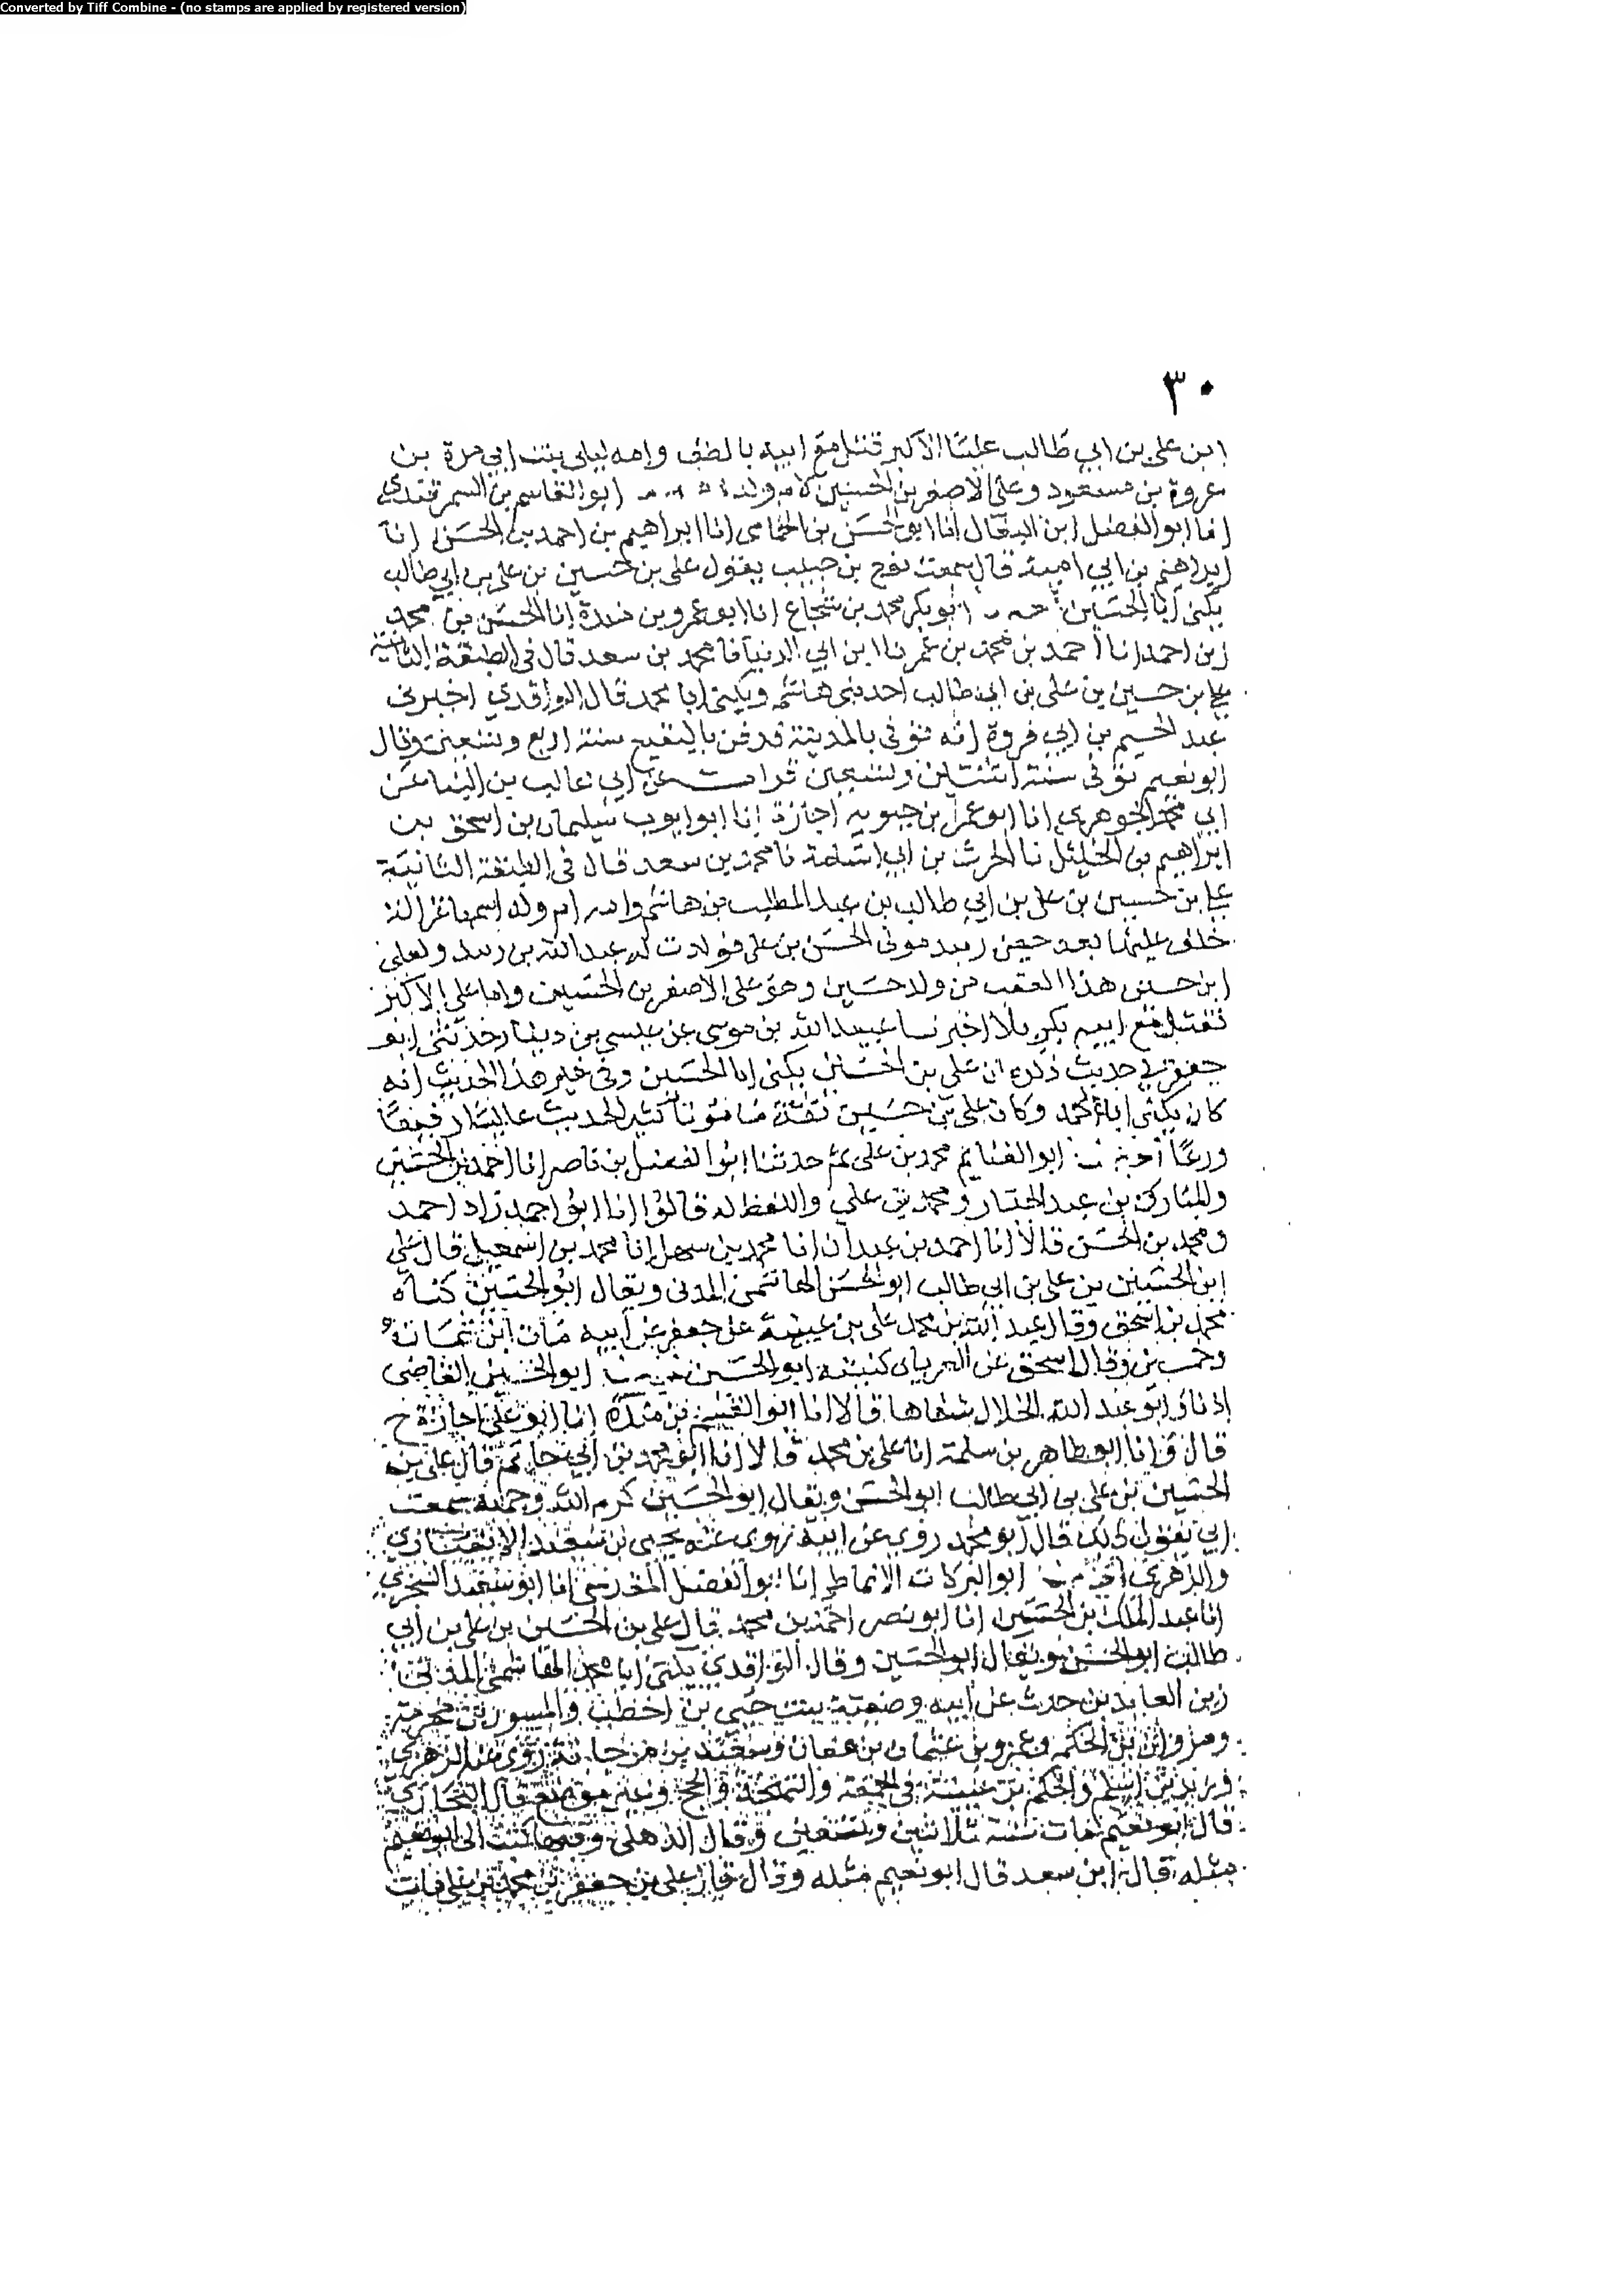 Converted by Tiff Combine - (no stamps are applied by registered version)
٣٠
ابن علي بن ابي طالب عليا الاكبر قتل مع ابيه بالطف وامه ليلى بنت ابي مرة بن
عروة بن مسعود وعلي الاصغر بن الحسين له ولده ابو القاسم بن السمرقندي
انا ابو الفضل ابن البقال انا ابو الحسن بن الحمامي انا ابراهيم بن احمد بن الحسن انا
ابراهيم بن ابي امية قال سمعت نوح بن حبيب يقول علي بن حسين بن علي بن ابي طالب
يكنى ابا الحسين ابو بكر محمد بن شجاع انا ابو عمرو بن مندة انا الحسن بن محمد
بن احمد انا احمد بن محمد بن عمر نا ابن ابي الدنيا نا محمد بن سعد قال في الطبقة الثانية
علي بن حسين بن علي بن ابي طالب احد بني هاشم ويكنى ابا محمد قال الواقدي اخبرني
عبد الحكيم بن ابي فروة انه توفي بالمدينة فدفن بالبقيع سنة اربع وتسعين وقال
ابو نعيم توفي سنة اثنتين وتسعين قرات على ابي غالب بن البنا عن
ابي محمد الجوهري انا ابو عمر بن حيويه اجازة انا ابو ايوب سليمان بن اسحق بن
ابراهيم بن الخليل نا الحرث بن ابي اسامة نا محمد بن سعد قال في الطبقة الثانية
علي بن حسين بن علي بن ابي طالب بن عبد المطلب بن هاشم وامه ام ولد اسمها غزالة
خلف عليها بعد حسين زبيد مولى الحسين بن علي فولدت له عبد الله بن زبيد ولعلي
ابن حسين هذا العقب من ولد حسين وهو علي الاصغر بن الحسين واما علي الاكبر
فقتل مع ابيه بكربلا اخبرنا عبيد الله بن موسى عن عيسى بن دينار حدثني ابو
جعفر في حديث ذكره ان علي بن الحسين يكنى ابا الحسين وفي غير هذا الحديث انه
كان يكنى ابا محمد وكان علي بن حسين ثقة مامونا كثير الحديث عاليا رفيعا
ورعا ابو الغنايم محمد بن علي ثم حدثنا ابو الفضل بن ناصر انا احمد بن الحسن
والمبارك بن عبد الجبار ومحمد بن علي واللفظ له قالوا انا ابو احمد زاد احمد
ومحمد بن الحسن قالا انا احمد بن عبدان انا محمد بن سهل انا محمد بن اسمعيل قال علي
ابن الحسين بن علي بن ابي طالب ابو الحسن الهاشمي المدني ويقال ابو الحسين كناه
محمد بن اسحق وقال عبد الله بن محمد علي بن عيينة عن جعفر عن ابيه مات ابن ثمان
وخمسين وقال اسحق عن كنيته ابو الحسين ابو الحسين القاضي
اذنا وابو عبد الله الخلال شفاها قالا انا ابو القسم بن مندة انا ابو علي اجازة ح
قال وانا ابو طاهر بن سلمة انا علي بن محمد قالا انا ابو محمد بن ابي حاتم قال علي بن
الحسين بن علي بن ابي طالب ابو الحسن ويقال ابو الحسين كرم الله وجهه سمعت
ابي يقول ذلك قال ابو محمد روى عن ابيه روى عنه يحيى بن سعيد الانصاري
والزهري ابو البركات الانماطي انا ابو الفضل انا ابو سعيد السجزي
انا عبد الملك بن الحسن انا ابو نصر احمد بن محمد قال علي بن الحسين بن علي بن ابي
طالب ابو الحسن ويقال ابو الحسين وقال الواقدي يكنى ابا محمد الهاشمي المدني
زين العابدين حدث عن ابيه وصفية بنت حيي بن اخطب والمسور بن مخرمة
ومروان بن الحكم وعمرو بن عثمان بن عفان وسعيد بن مرجانة روى عنه الزهري
وزيد بن اسلم والحكم بن عتيبة في الجمعة والتهجد والحج وغير موضع قال البخاري
قال ابو نعيم مات سنة ثلاثين وتسعين وقال الذهلي وفيما كتب الي ابو نعيم
مثله قال ابن سعد قال ابو نعيم مثله وقال قال علي بن جعفر بن محمد بن علي مات